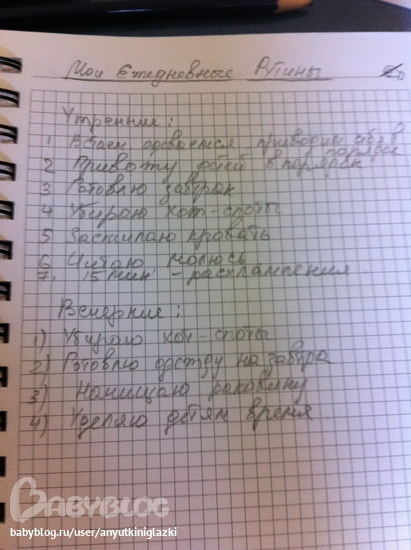 Мои Ежедневные Рутины
Утренние:
1 Встаем, одеваемся, приводим себя в порядок
2 Привожу детей в порядок
3 Готовлю завтрак
4 Убираю хот-споты
5 Застилаю кровать
6 Читаю молюсь
7. 15 мин - расхламления
Вечерние:
1) Убираю хот-споты
2) Готовлю одежду на завтра
3) Начищаю раковину
4) Уделяю детям время
BABYBLOG
babyblog.ru/user/anyutkiniglazki